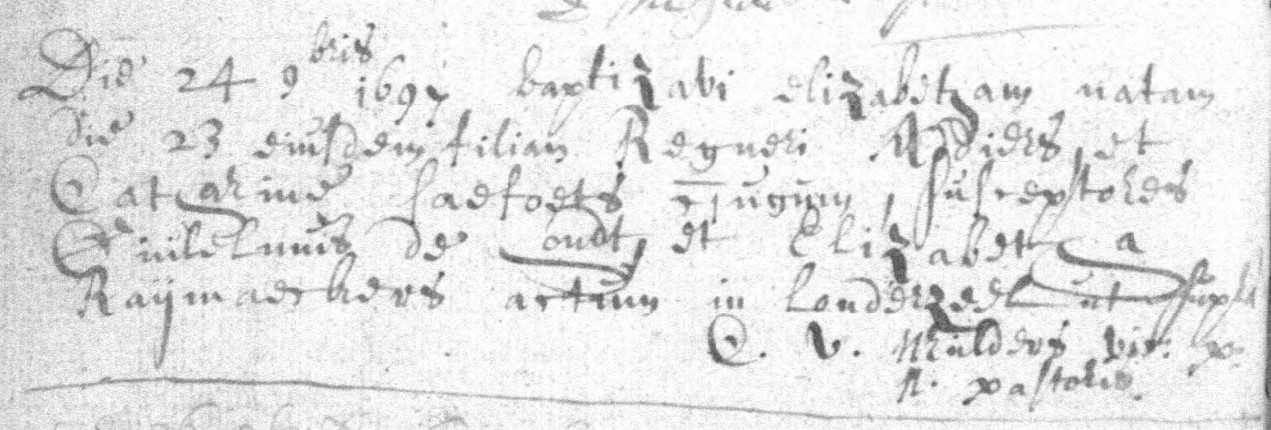 Die 24 9bris 1697 baptizavi elizabetham natam
die 23 eiusdem filiam Regneri et
Catharine Saefoets coniugum, susceptores
Guilelmus de hondt et Elizabetha
Raijmaeckers actum in londerzeel ut supra
C. v. Mulders vic: p
N. pastoris